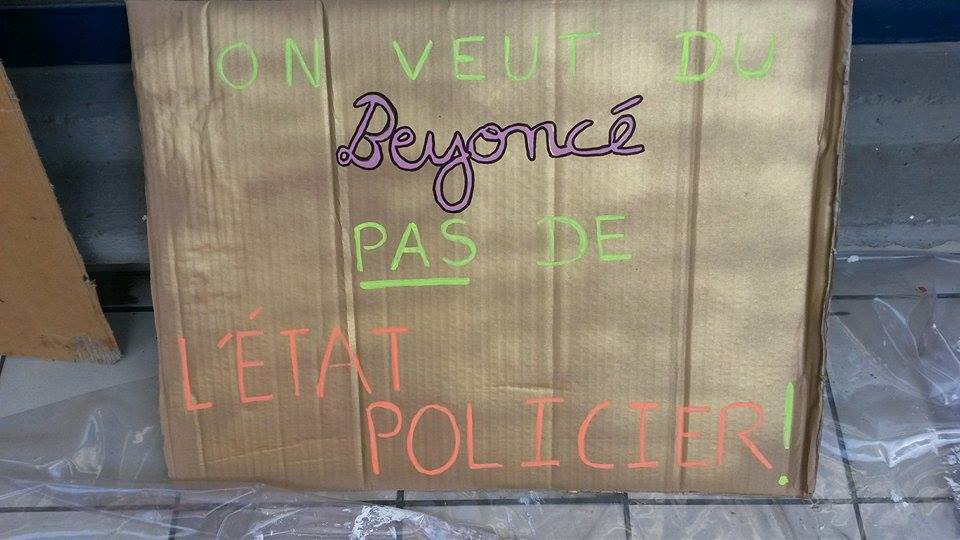 ON VEUT DU
Beyoncé
PAS DE
L'ÉTAT
POLICIER!